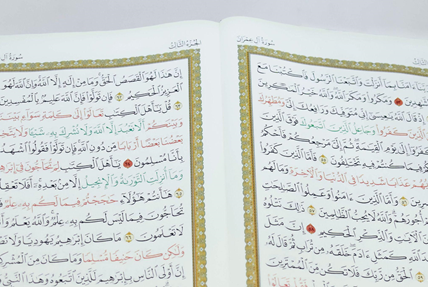 سورة آل عمران
الجزء الثالث
ءَامَنَّا بِمَا أَنزَلْتَ وَاتَّبَعْنَا الرَّسُولَ فَاكْتُبْنَا مَعَ
الشَّٰهِدِينَ ٥٣ وَمَكَرُوا وَمَكَرَ اللَّهُ وَاللَّهُ خَيْرُ الْمَٰكِرِينَ
يَٰعِيسَىٰ إِنِّي مُتَوَفِّيكَ وَرَافِعُكَ إِلَيَّ وَمُطَهِّرُكَ
الَّذِينَ كَفَرُوا وَجَاعِلُ الَّذِينَ اتَّبَعُوكَ فَوْقَ الَّذِينَ
كَفَرُوا إِلَىٰ يَوْمِ الْقِيَٰمَةِ ثُمَّ إِلَيَّ مَرْجِعُكُمْ فَأَحْكُمُ
فِيمَا كُنتُمْ فِيهِ تَخْتَلِفُونَ ٥٥ فَأَمَّا الَّذِينَ كَفَرُوا
عَذَابًا شَدِيدًا فِي الدُّنْيَا وَالْءَاخِرَةِ وَمَا لَهُم
وَأَمَّا الَّذِينَ ءَامَنُوا وَعَمِلُوا الصَّٰلِحَٰتِ
أُجُورَهُمْ وَاللَّهُ لَا يُحِبُّ الظَّٰلِمِينَ ٥٧ ذَٰلِكَ نَتْلُوهُ
مِنَ الْءَايَٰتِ وَالذِّكْرِ الْحَكِيمِ ٥٨ إِنَّ مَثَلَ
كَمَثَلِ ءَادَمَ خَلَقَهُ مِن تُرَابٍ ثُمَّ قَالَ لَهُ
الْحَقُّ مِن رَّبِّكَ فَلَا تَكُن مِّنَ الْمُمْتَرِينَ
الجزء الثالث
سورة آل
إِنَّ هَٰذَا لَهُوَ الْقَصَصُ الْحَقُّ وَمَا مِنْ إِلَٰهٍ إِلَّا اللَّهُ وَإِنَّ اللَّهَ لَهُوَ
الْعَزِيزُ الْحَكِيمُ ٦٢ فَإِن تَوَلَّوْا فَإِنَّ اللَّهَ عَلِيمٌ بِالْمُفْسِدِينَ
قُلْ يَٰأَهْلَ الْكِتَٰبِ تَعَالَوْا إِلَىٰ كَلِمَةٍ سَوَاءٍ بَيْنَنَا
وَبَيْنَكُمْ أَلَّا نَعْبُدَ إِلَّا اللَّهَ وَلَا نُشْرِكَ بِهِ شَيْئًا وَلَا يَتَّخِذَ
بَعْضُنَا بَعْضًا أَرْبَابًا مِّن دُونِ اللَّهِ فَإِن تَوَلَّوْا فَقُولُوا اشْهَدُوا
بِأَنَّا مُسْلِمُونَ ٦٤ يَٰأَهْلَ الْكِتَٰبِ لِمَ تُحَاجُّونَ فِي إِبْرَٰهِيمَ
وَمَا أُنزِلَتِ التَّوْرَىٰةُ وَالْإِنجِيلُ إِلَّا مِن بَعْدِهِ أَفَلَا تَعْقِلُونَ
هَٰأَنتُمْ هَٰؤُلَاءِ حَٰجَجْتُمْ فِيمَا لَكُم بِهِ عِلْمٌ فَلِمَ
تُحَاجُّونَ فِيمَا لَيْسَ لَكُم بِهِ عِلْمٌ وَاللَّهُ يَعْلَمُ وَأَنتُمْ
لَا تَعْلَمُونَ ٦٦ مَا كَانَ إِبْرَٰهِيمُ يَهُودِيًّا وَلَا نَصْرَانِيًّا
وَلَٰكِن كَانَ حَنِيفًا مُّسْلِمًا وَمَا كَانَ مِنَ الْمُشْرِكِينَ
إِنَّ أَوْلَى النَّاسِ بِإِبْرَٰهِيمَ لَلَّذِينَ اتَّبَعُوهُ وَهَٰذَا النَّبِيُّ